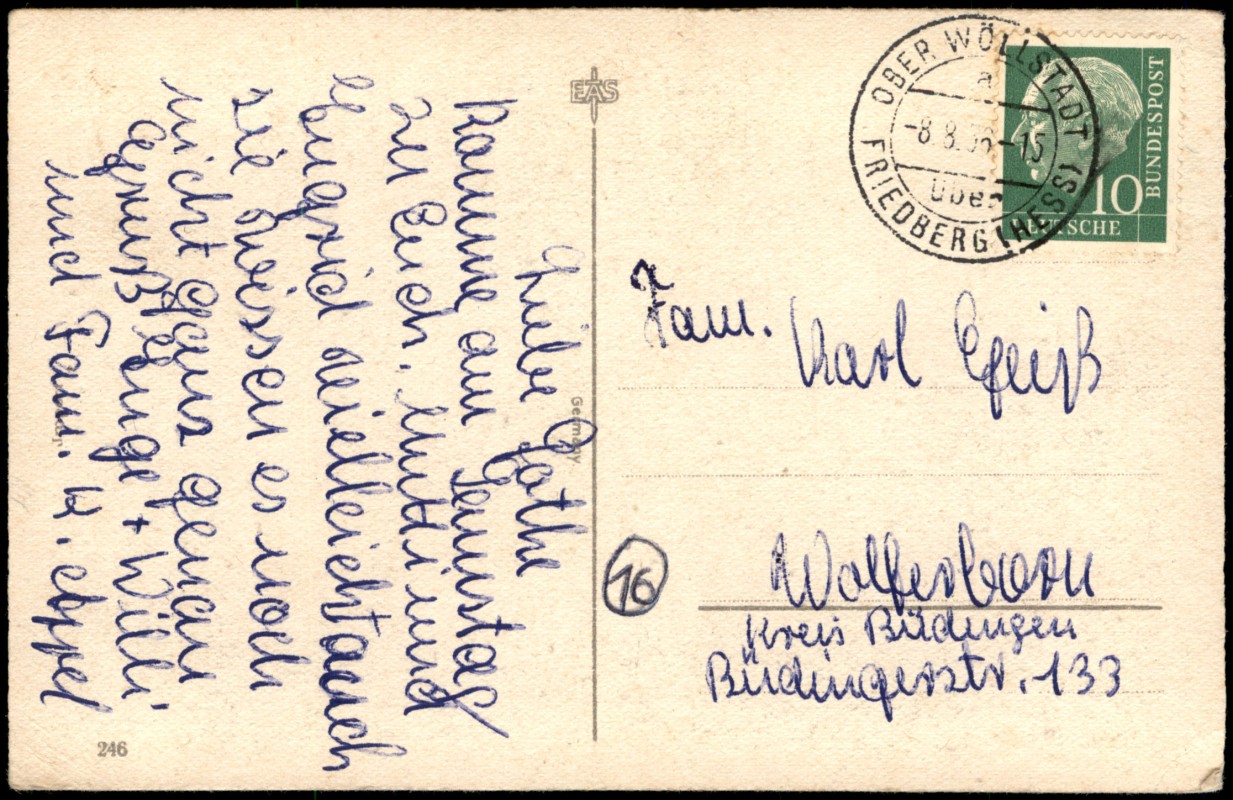 Liebe Gothe
Komme am Samstag
zu Euch. Mutti und
vielleicht auch
sie wissen es noch
nicht ganz genau
Gruß + Willi.
und Fam. K. Appel
246
EAS
Germany
OBER WÖLLSTADT
a
-8.8.56-15
über
FRIEDBERG (HESS)
10
DEUTSCHE
BUNDESPOST
Fam. Karl Geiß
16
Wolferborn
Kreis Büdingen
Büdingerstr. 133